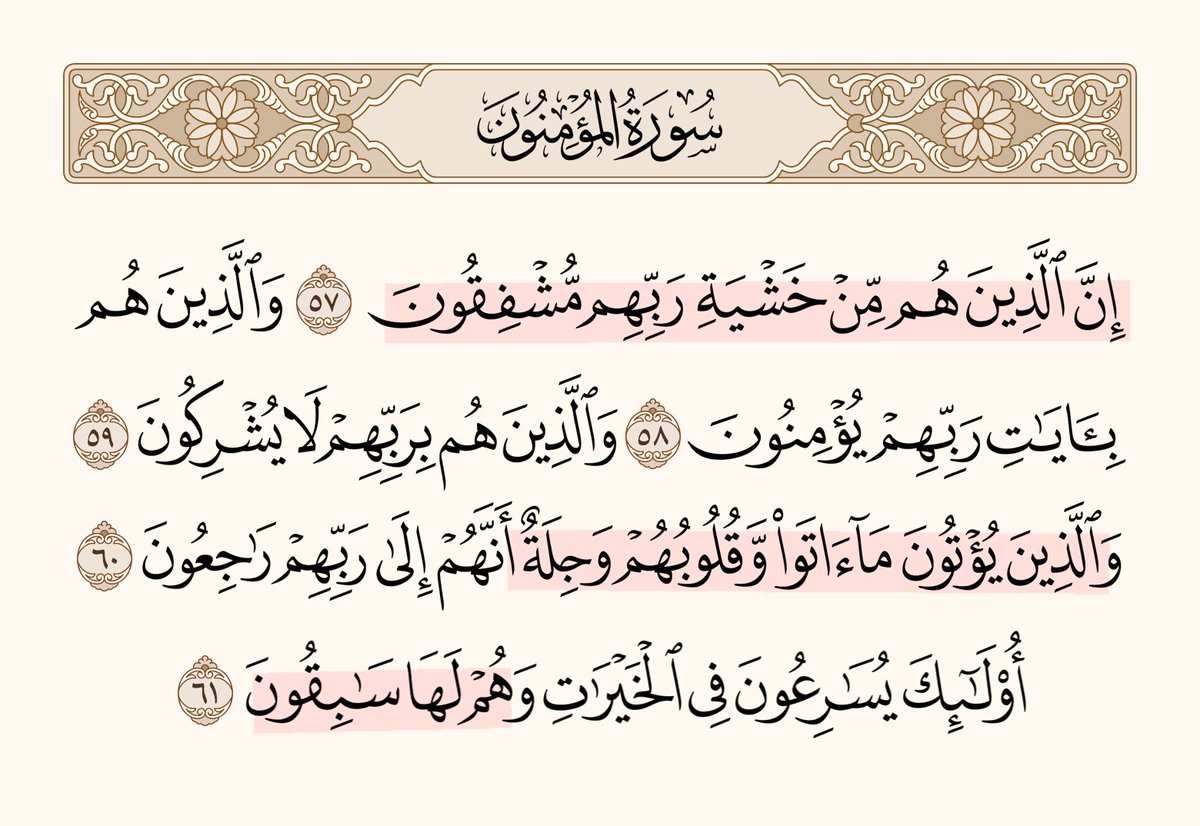 سُورَةُ الْمُؤْمِنُونَ
إِنَّ ٱلَّذِينَ هُم مِّنْ خَشْيَةِ رَبِّهِم مُّشْفِقُونَ ٥٧ وَٱلَّذِينَ هُم
بِـَٔايَـٰتِ رَبِّهِمْ يُؤْمِنُونَ ٥٨ وَٱلَّذِينَ هُم بِرَبِّهِمْ لَا يُشْرِكُونَ ٥٩
وَٱلَّذِينَ يُؤْتُونَ مَآ ءَاتَوا۟ وَّقُلُوبُهُمْ وَجِلَةٌ أَنَّهُمْ إِلَىٰ رَبِّهِمْ رَٰجِعُونَ ٦٠
أُو۟لَـٰٓئِكَ يُسَـٰرِعُونَ فِى ٱلْخَيْرَٰتِ وَهُمْ لَهَا سَـٰبِقُونَ ٦١